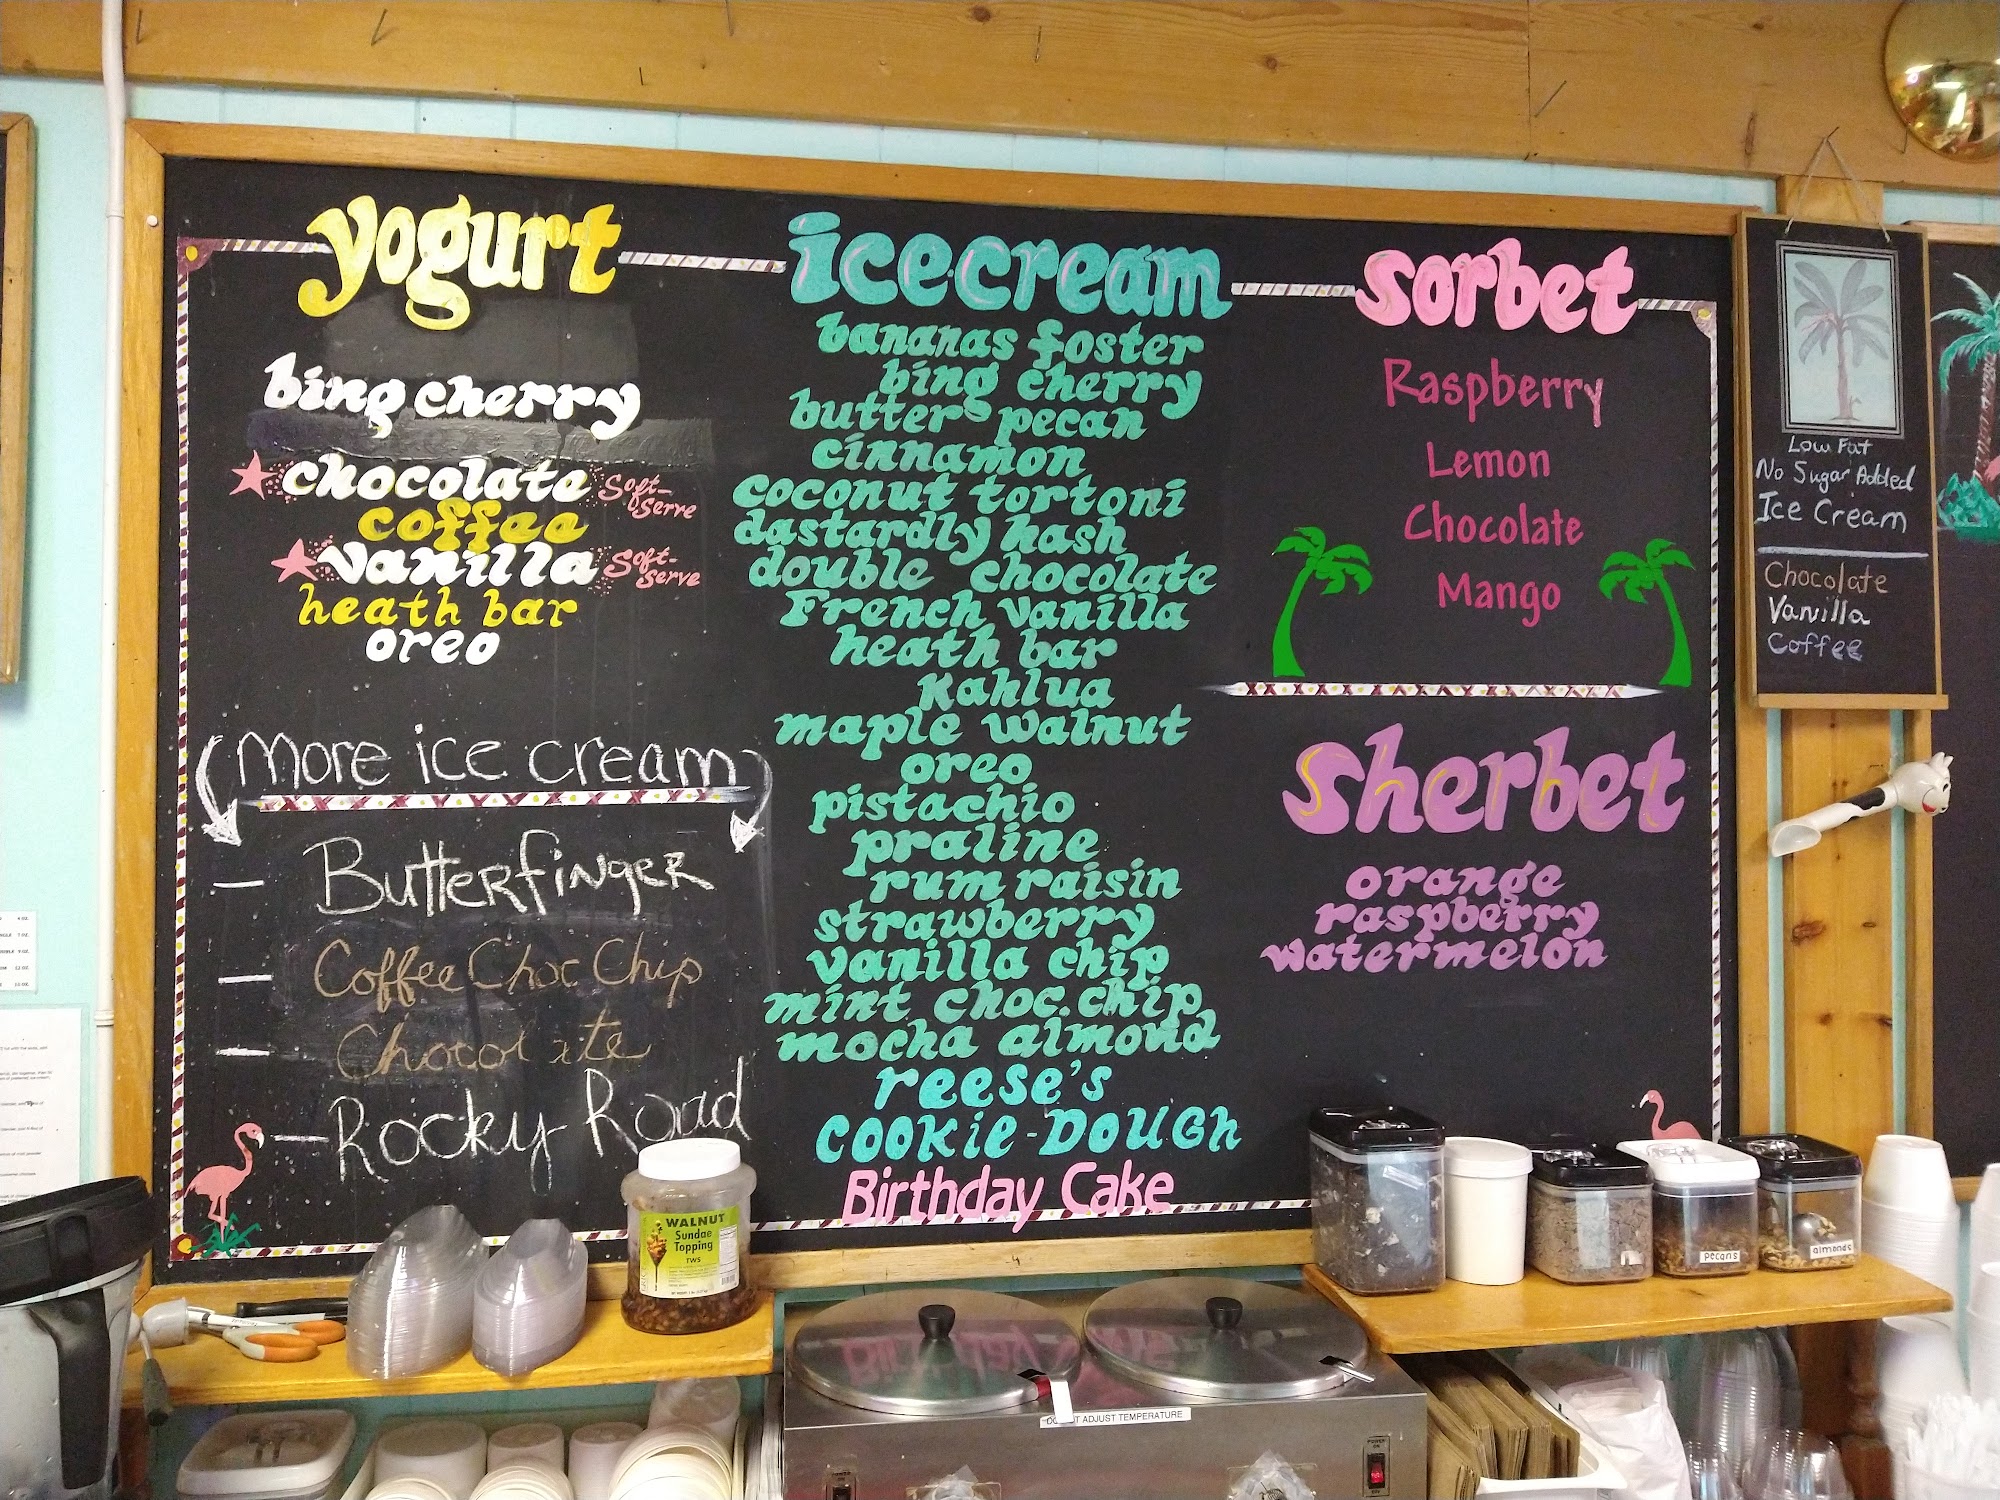 yogurt
bing cherry
chocolate soft-serve
coffee
vanilla soft-serve
heath bar
oreo
more ice cream
Butterfinger
Coffee Choc Chip
Chocolate
Rocky Road
icecream
bananas foster
bing cherry
butter pecan
cinnamon
coconut tortoni
dastardly hash
double chocolate
French vanilla
heath bar
Kahlua
maple walnut
oreo
pistachio
praline
rum raisin
strawberry
vanilla chip
mint choc. chip
mocha almond
reese's
COOKiE-DOUGh
Birthday Cake
sorbet
Raspberry
Lemon
Chocolate
Mango
sherbet
orange
raspberry
watermelon
Low Fat
No Sugar Added
Ice Cream
Chocolate
Vanilla
Coffee
WALNUT
Sundae
Topping
TWS
pecans
almonds
ADJUST TEMPERATURE
POWER
ON